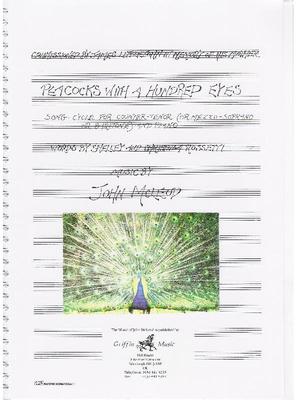 COMMISSIONED BY JAMES IN MEMORY OF HIS MOTHER
PEACOCKS WITH A HUNDRED EYES
SONG CYCLE FOR COUNTER-TENOR (OR MEZZO-SOPRANO
OR BARITONE) AND PIANO
WORDS BY SHELLEY AND CHRISTINA ROSSETTI
MUSIC BY
JOHN MCLEOD
The Music of John McLeod is published by
Griffin Music